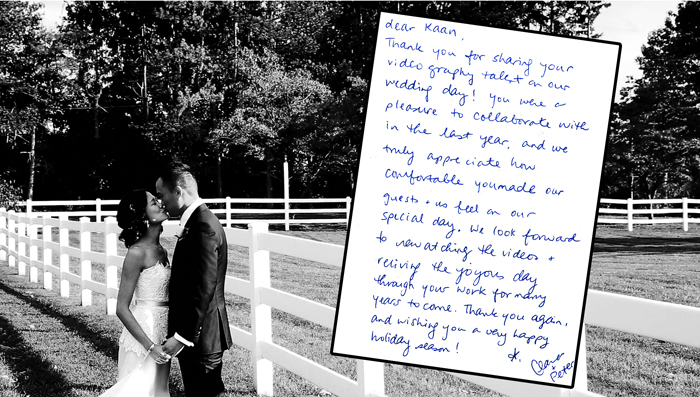 dear Kaan,
Thank you for sharing your
videography talent on our
wedding day! you were a
pleasure to collaborate with
in the last year, and we
truly appreciate how
comfortable you made our
guests + us feel on our
special day. We look forward
to rewatching the videos +
reliving the joyous day
through your work for many
years to come. Thank you again,
and wishing you a very happy
holiday season!
x.
+ Peter